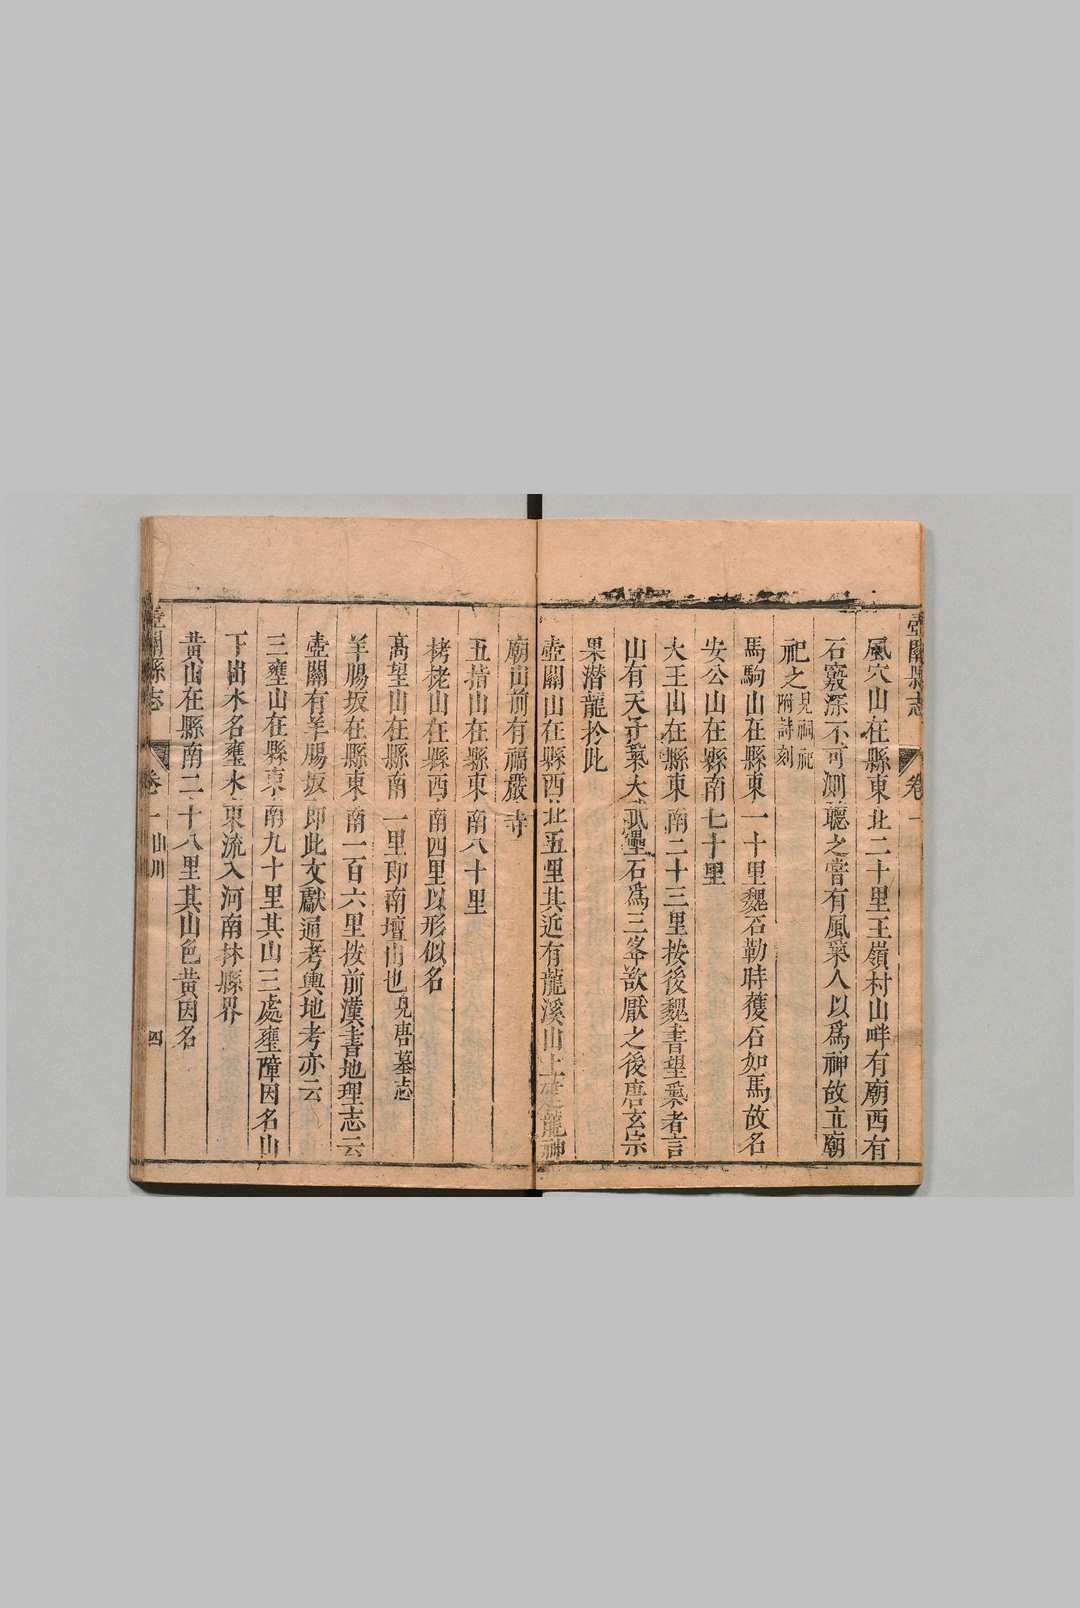 壺關縣志
卷一
風穴山在縣東北二十里王嶺村山畔有廟西有
石竅深不可測聽之嘗有風氣人以爲神故立廟
祀之見祠祀附詩刻
馬駒山在縣東一十里魏石勒時獲石如馬故名
安公山在縣南七十里
大王山在縣東南二十三里按後魏書望氣者言
山有天子氣大武壘石爲三峯欲厭之後唐玄宗
果潜龍於此
壺關山在縣西北五里其近有龍溪山上建龍神
廟山前有福嚴寺
五指山在縣東南八十里
栲栳山在縣西南四里以形似名
高望山在縣南一里即南壇山也見唐墓志
羊腸坂在縣東南一百六里按前漢書地理志云
壺關有羊腸坂即此文獻通考輿地考亦云
三壅山在縣東南九十里其山三處壅障因名山
下出水名壅水東流入河南林縣界
黄山在縣南二十八里其山色黄因名
壺關縣志
卷一
山川
四